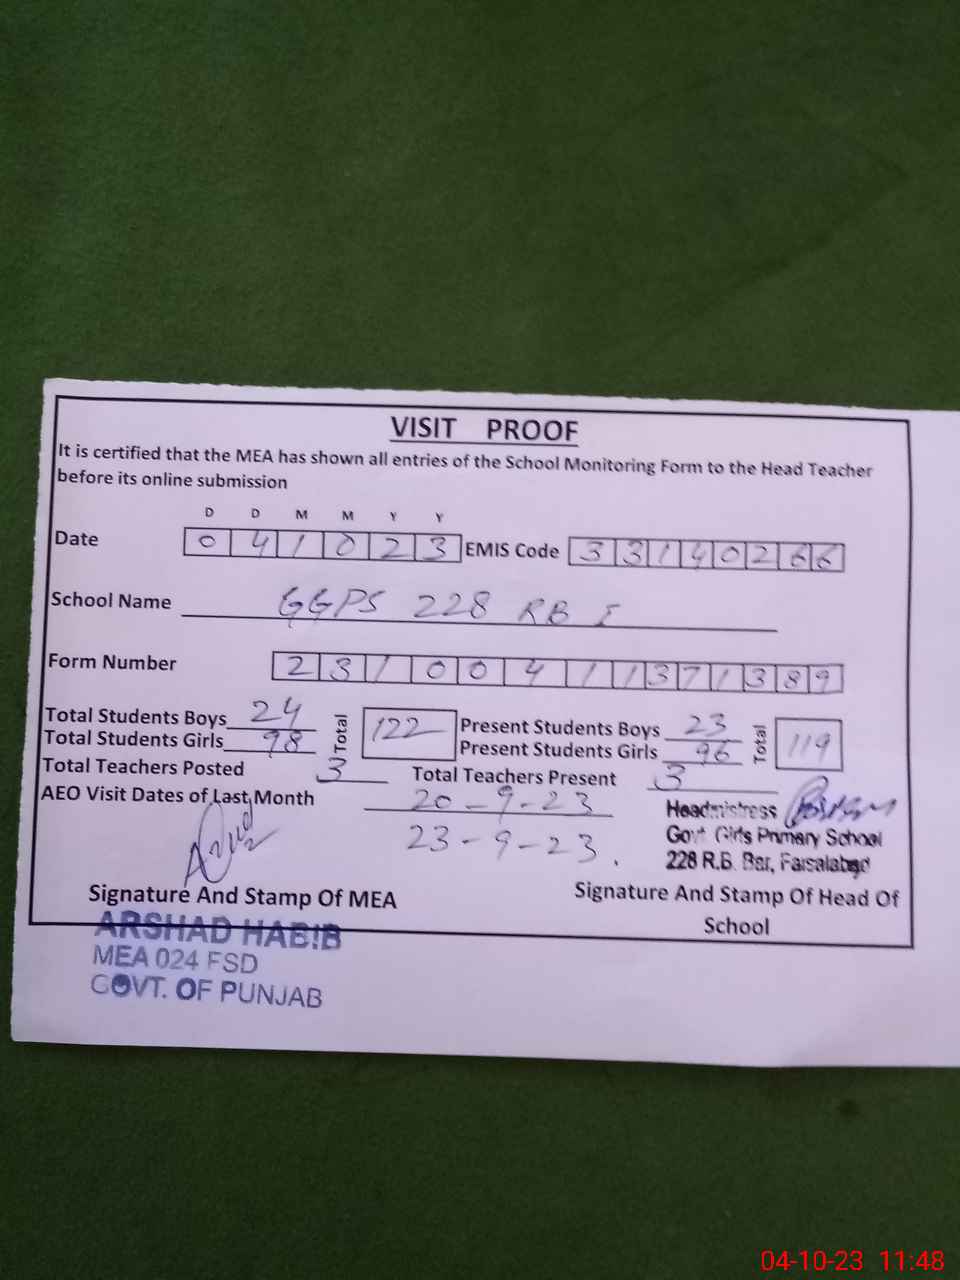 VISIT PROOF
It is certified that the MEA has shown all entries of the School Monitoring Form to the Head Teacher
before its online submission
D D M M Y Y
Date 0 4 1 0 2 3 EMIS Code 3 3 1 4 0 2 6 6
School Name GGPS 228 RB I
Form Number 2 3 1 0 0 4 1 1 3 7 1 3 8 9
Total Students Boys 24 Total 122 Present Students Boys 23 Total 119
Total Students Girls 98 Present Students Girls 96
Total Teachers Posted 3 Total Teachers Present 3
AEO Visit Dates of Last Month 20-9-23
23-9-23.
Headmistress
Govt. Girls Primary School
228 R.B. Bar, Faisalabad
Signature And Stamp Of MEA
Signature And Stamp Of Head Of
School
ARSHAD HABIB
MEA 024 FSD
GOVT. OF PUNJAB
04-10-23 11:48